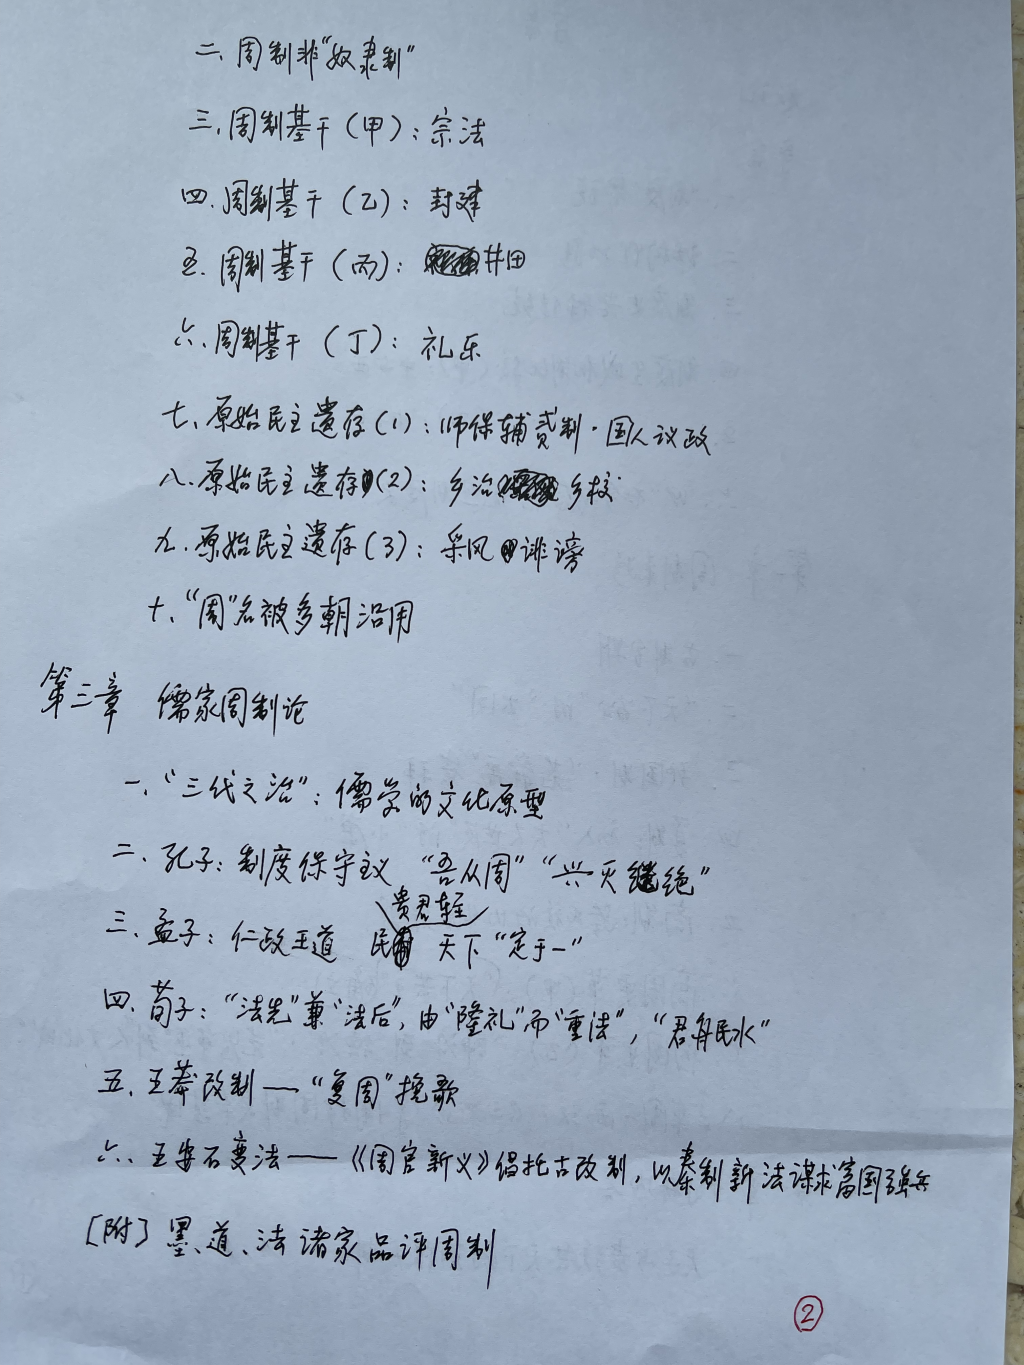 二、周制非“奴隶制”
三、周制基干（甲）：宗法
四、周制基干（乙）：封建
五、周制基干（丙）：井田
六、周制基干（丁）：礼乐
七、原始民主遗存（1）：师保辅贰制·国人议政
八、原始民主遗存（2）：乡治 乡校
九、原始民主遗存（3）：采风 诽谤
十、“周”名被多朝沿用
第三章 儒家周制论
一、“三代之治”：儒学的文化原型
二、孔子：制度保守主义 “吾从周”“兴灭继绝”
三、孟子：仁政王道 民贵君轻 天下“定于一”
四、荀子：“法先”兼“法后”，由“隆礼”而“重法”，“君舟民水”
五、王莽改制——“复周”挽歌
六、王安石变法——《周官新义》倡托古改制，以秦制新法谋求富国强兵
［附］墨、道、法诸家品评周制
②